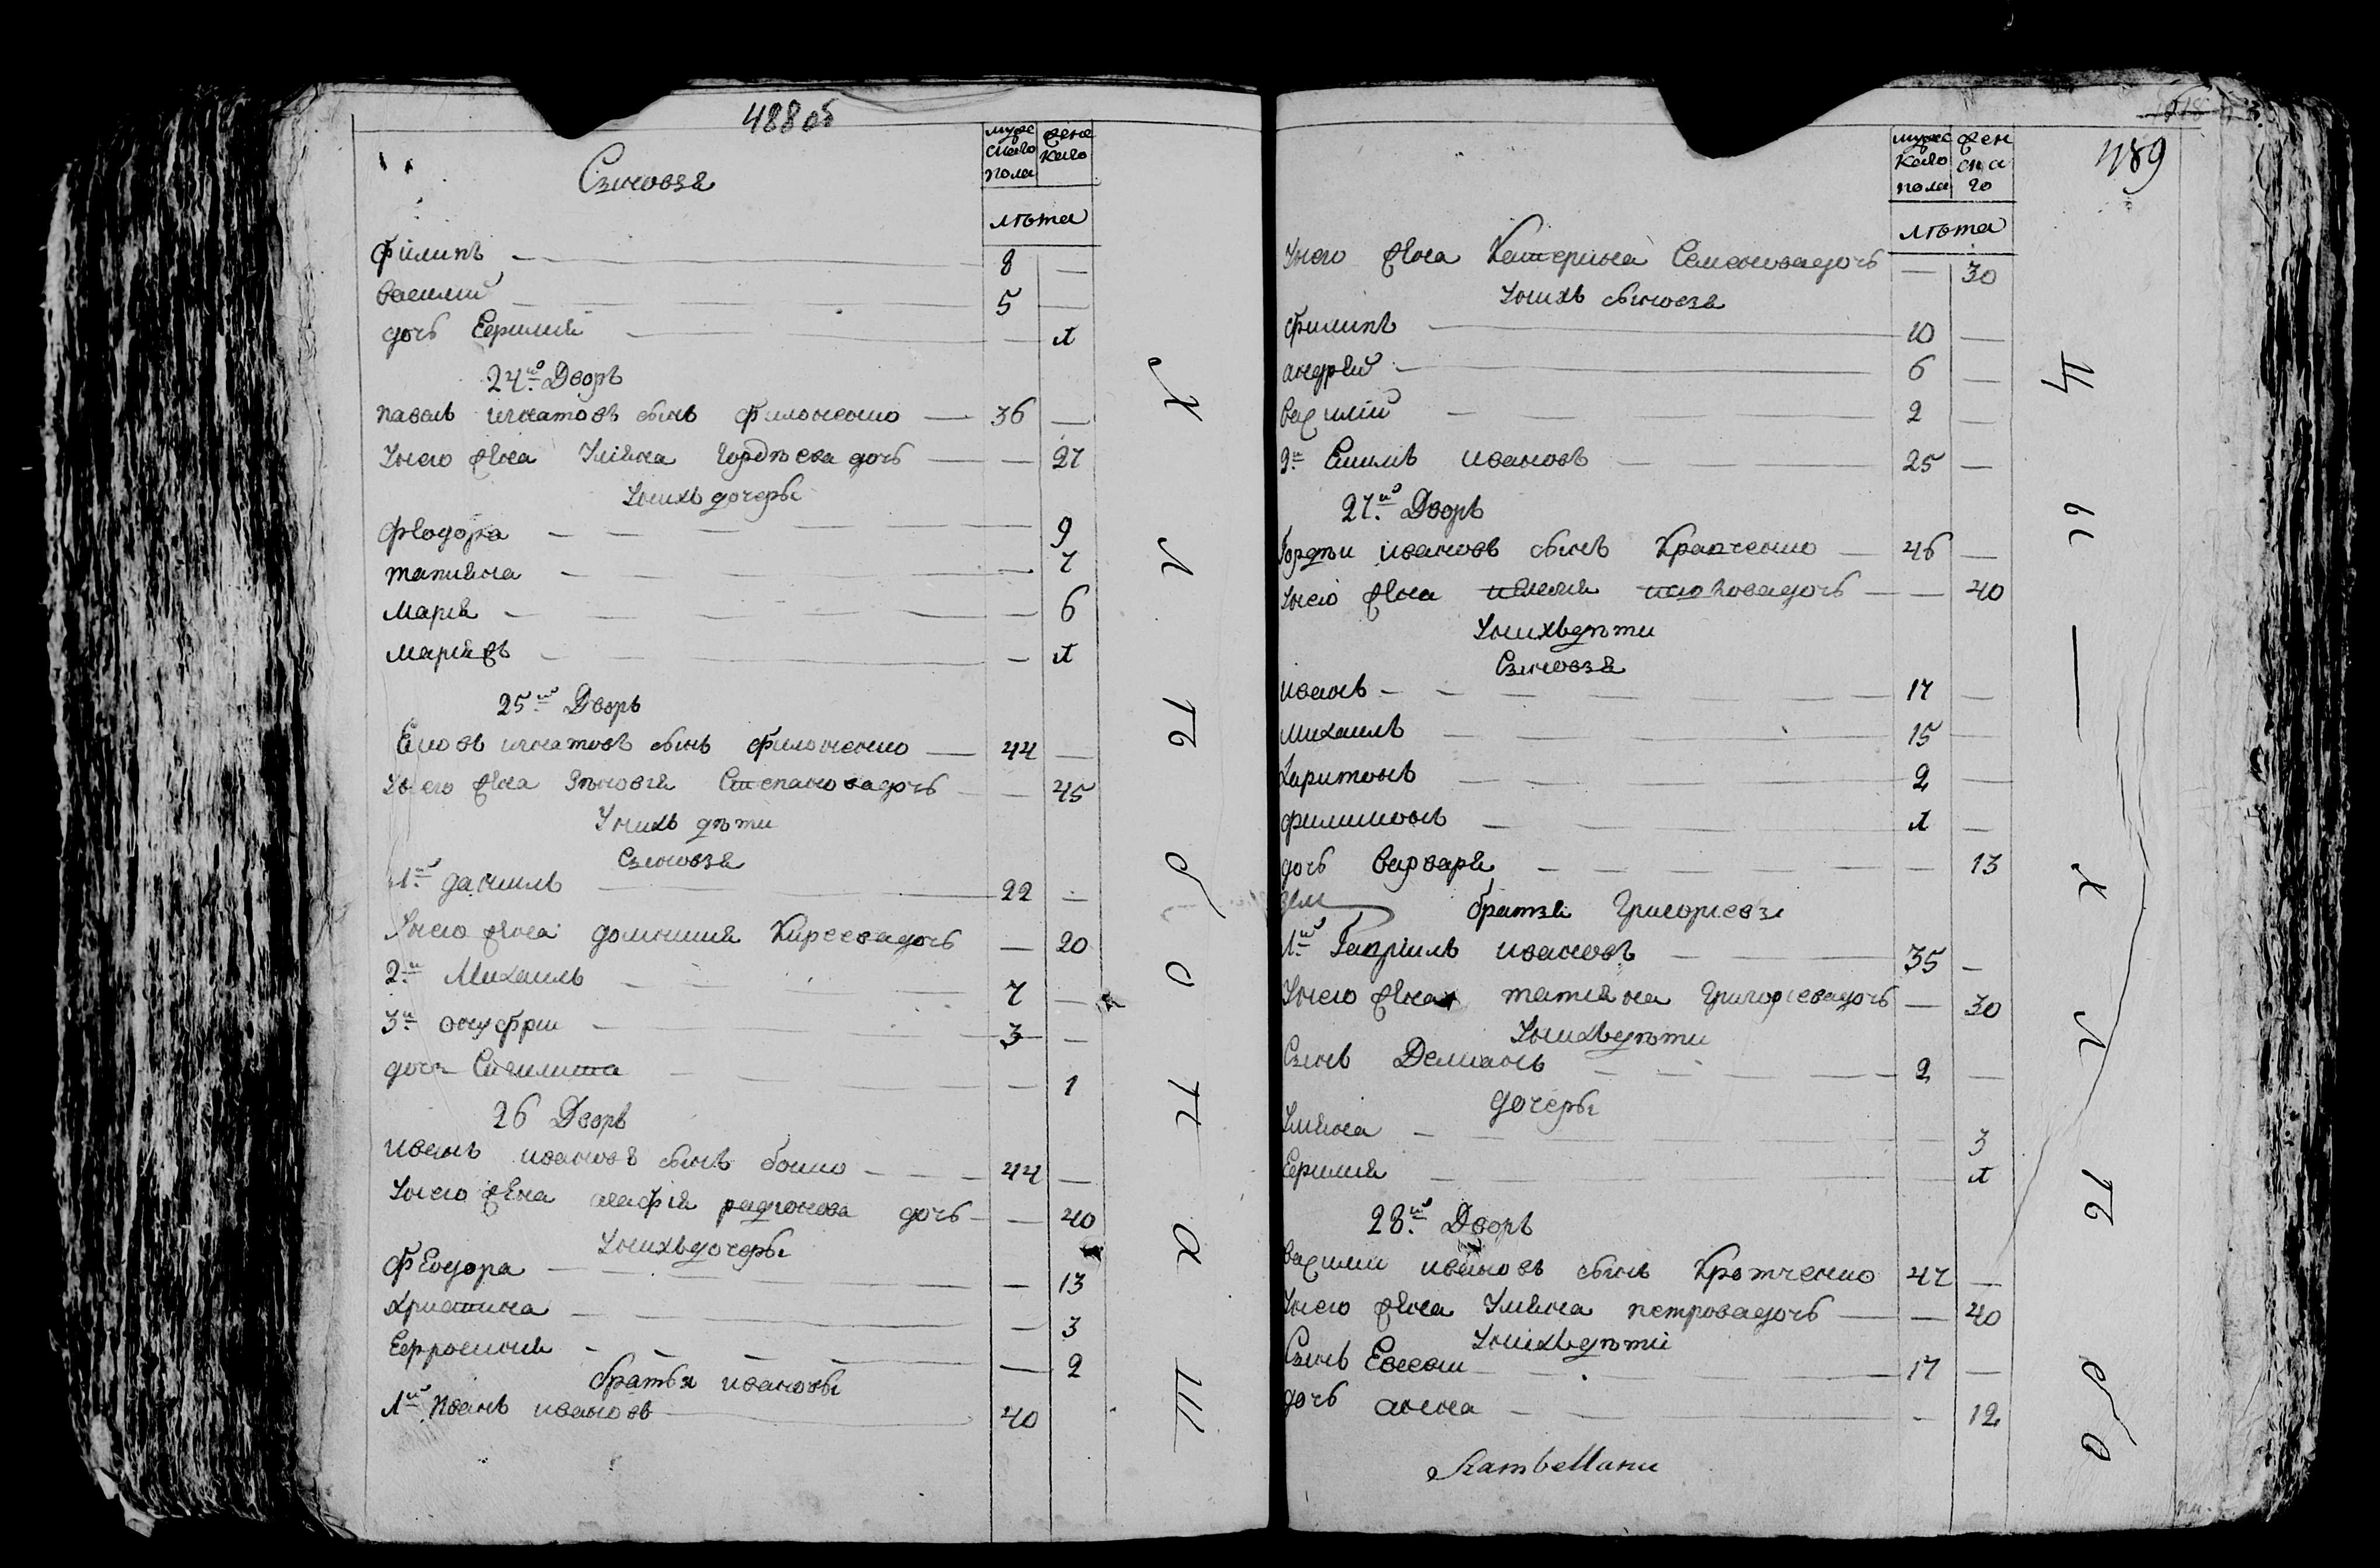 488 об
мужс женс
скаго каго
пола
лѣта
Сыновья
Филипъ — 8 —
василий — 5 —
дочь Еѳримия — — 1
24й Дворъ
павелъ игнатовъ сынъ филоненко — 36 —
Унего жена Улияна Гордѣева дочь — — 27
Унихъ дочеры
Феодора — 9
татияна — — 7
Мария — — 6
Мария — 1
25й Дворъ
игнатовъ сынъ филоненко — 44 —
Унего жена Зѣновия Степанова дочь — — 45
Унихъ дѣти
Сыновья
1й данилъ — 22 —
Унего жена домникия Киреева дочь — 20
2й Михаилъ — 7 —
3й онуфрии — 3 —
дочь — — 1
26 Дворъ
иванъ ивановъ сынъ бойко — 44 —
Унего жена агафия радионова дочь — — 40
Унихъ дочеры
Феодора — — 13
Христина — — 3
Еѳросиния — — 2
братья ивановы
1й Иванъ ивановъ — 40
Х Л Ѣ б о п а ш
489
мужес жен
каго ска
пола го
лѣта
Унего жена Катерина Семенова дочь — 30
Унихъ сыновья
Филипъ — 10 —
андрей — 6 —
василий — 2 —
2й ивановъ — 25 —
27й Дворъ
Гордѣи ивановъ сынъ Кравченко — 46 —
Унего жена дочь — — 40
Унихъ дѣти
Сыновья
иванъ — 17 —
Михаилъ — 15 —
Харитонъ — 2 —
филимонъ — 1 —
дочь варвара — — 13
братья Григориевы
1й Гавриилъ ивановъ — 35 —
Унего жена татияна Григориева дочь — 30
Унихъ дѣти
Сынъ Демианъ — 2 —
дочеры
Улияна — — 3
Еѳримия — 1
28й Дворъ
василии ивановъ сынъ Кравченко 47 —
Унего жена Улияна петрова дочь — — 40
Унихъ дѣти
Сынъ Евсеви — 17 —
дочь анна — - 12
Щ и — х л ѣ б о